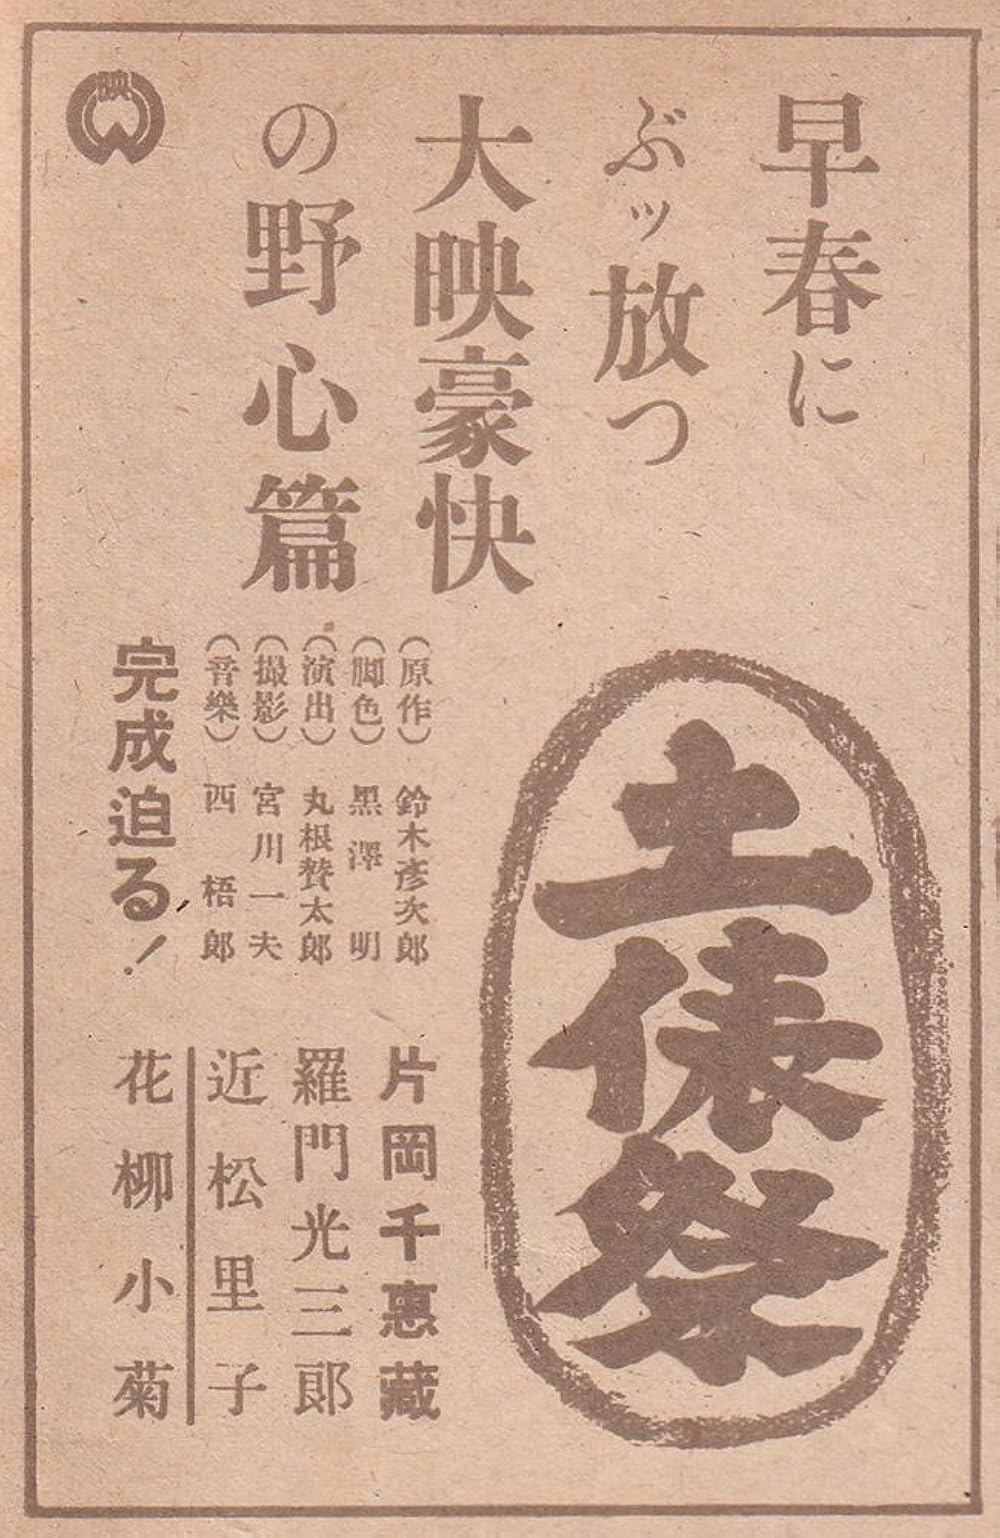 早春に
ぶッ放つ
大映豪快
の野心篇
映
土俵祭
(原作) 鈴木彦次郎
(脚色) 黒澤明
(演出) 丸根賛太郎
(撮影) 宮川一夫
(音樂) 西梧郎
完成迫る!
片岡千惠藏
羅門光三郎
近松里子
花柳小菊